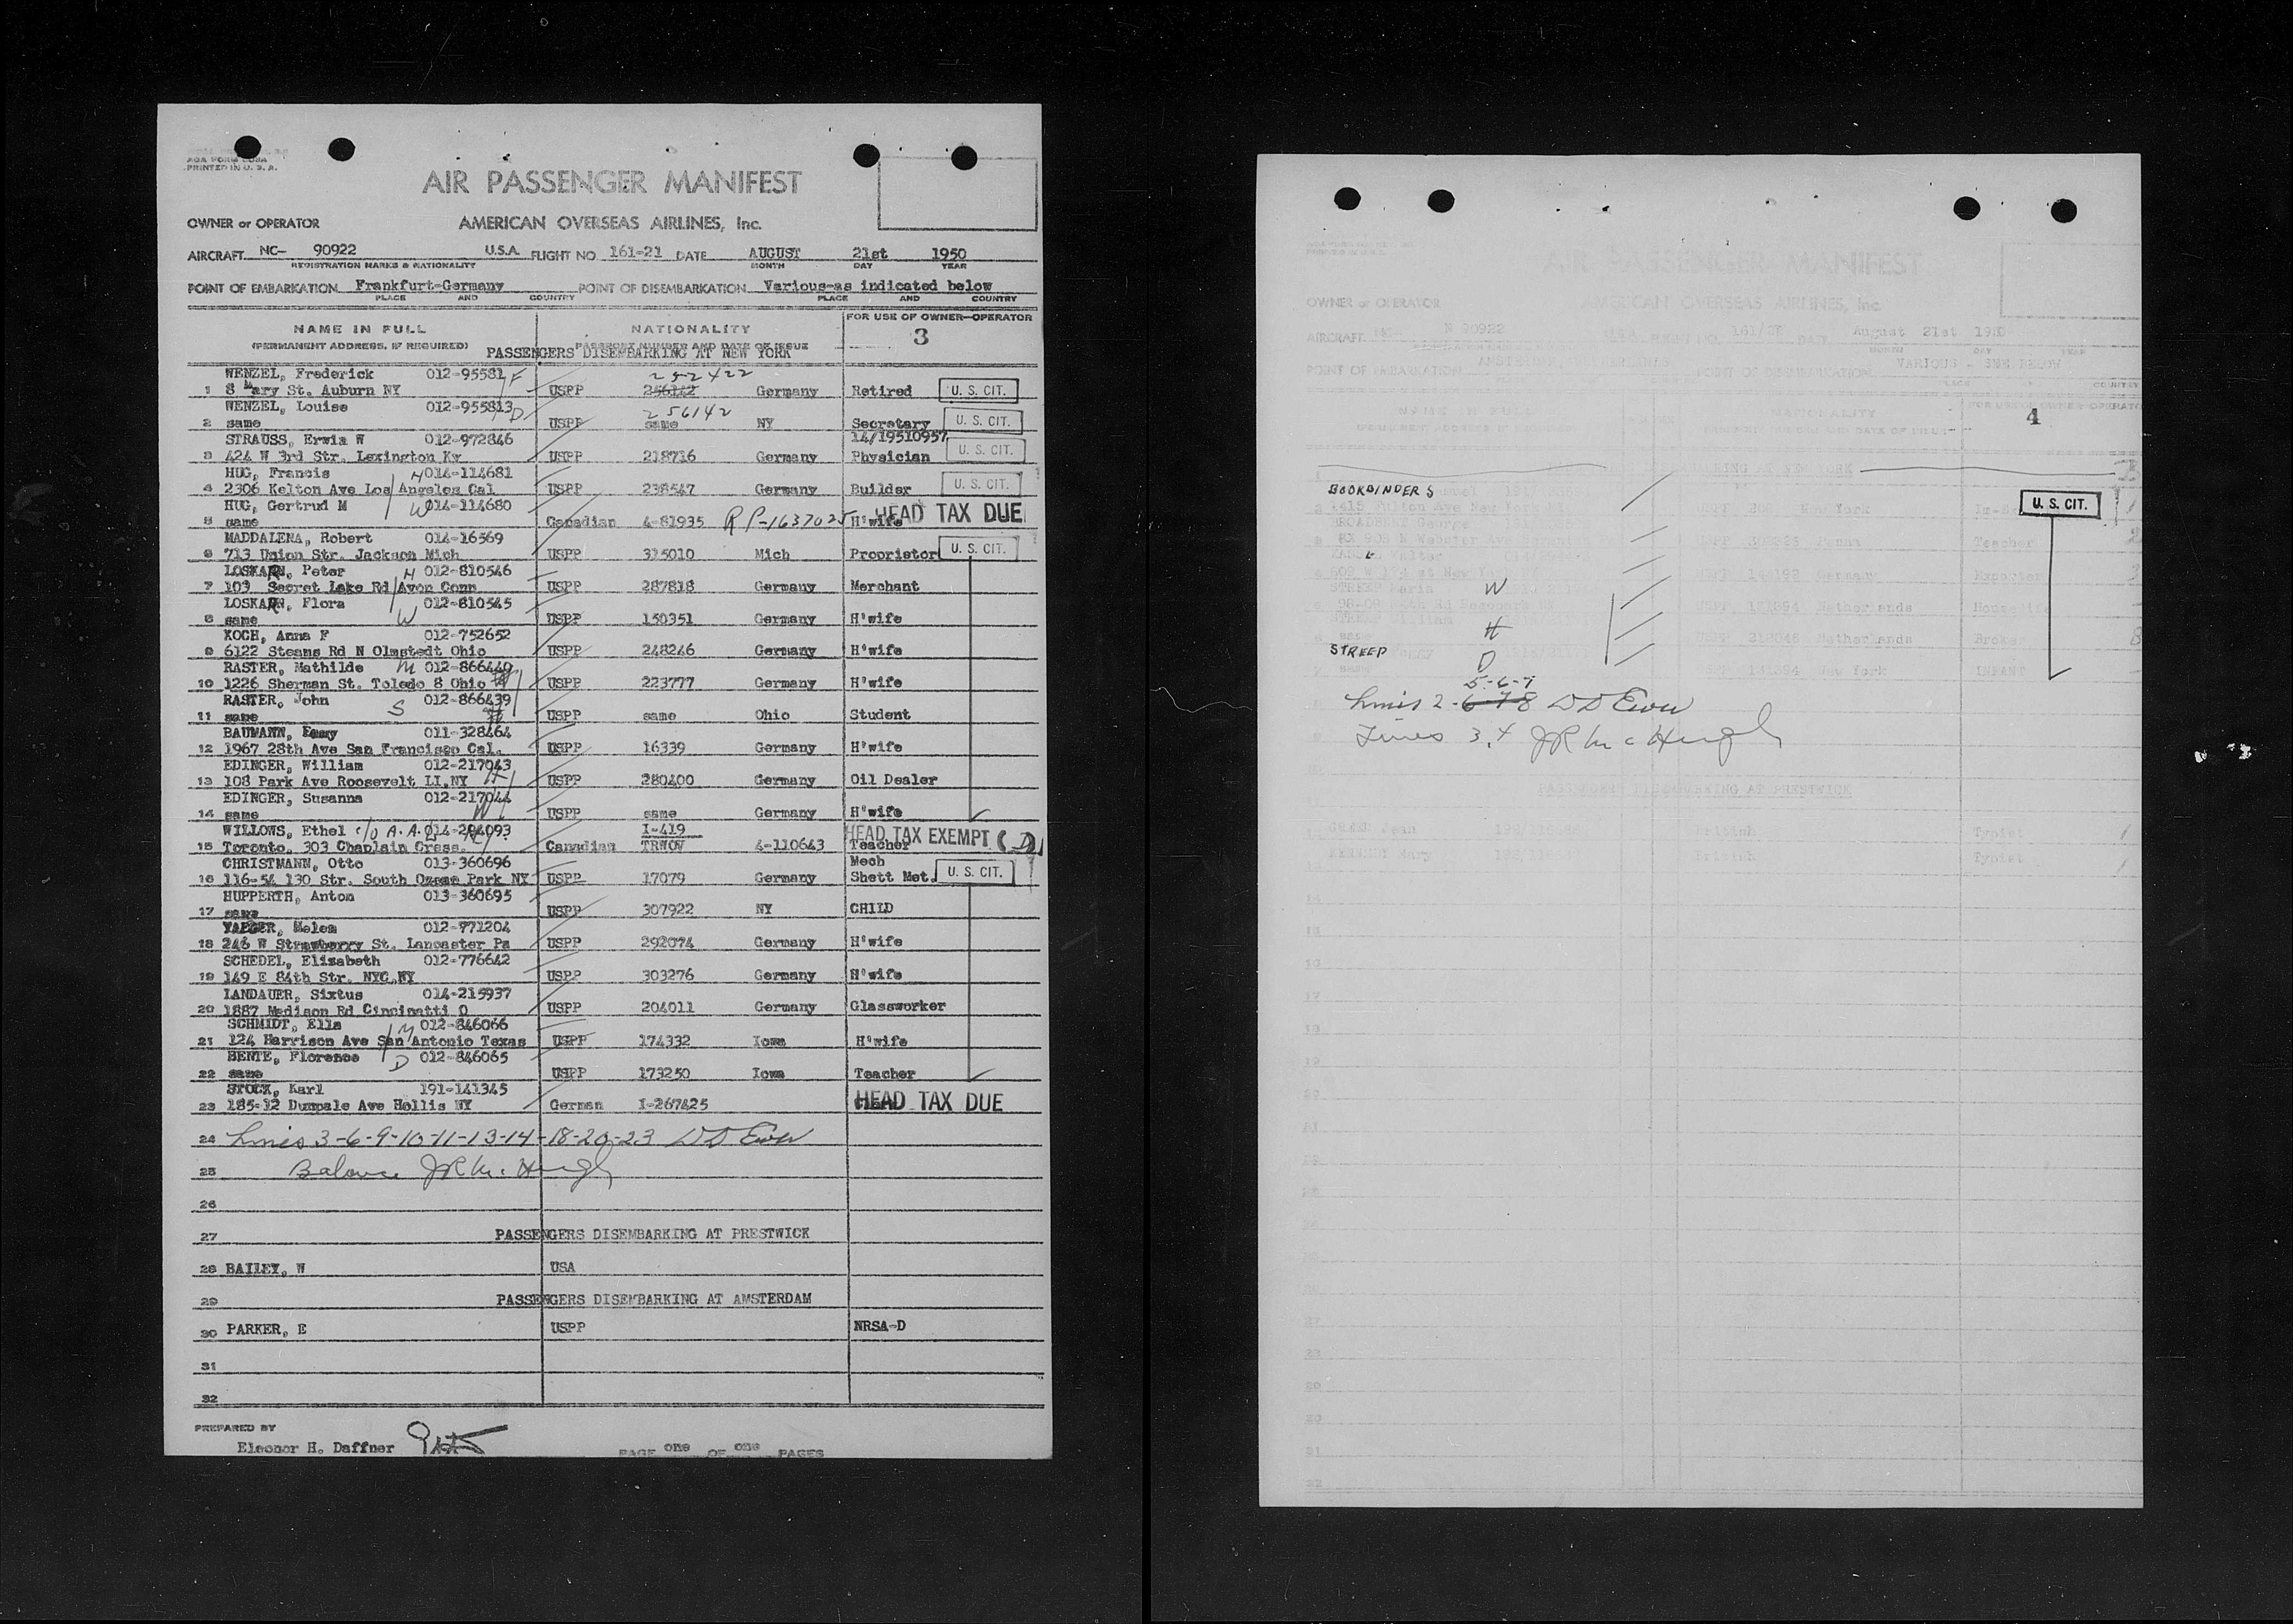 AOA FORM
PRINTED IN U. S. A.
AIR PASSENGER MANIFEST
OWNER or OPERATOR AMERICAN OVERSEAS AIRLINES, Inc.
AIRCRAFT NC- 90922 U.S.A. FLIGHT NO 161-21 DATE AUGUST 21st 1950
REGISTRATION MARKS & NATIONALITY MONTH DAY YEAR
POINT OF EMBARKATION Frankfurt-Germany POINT OF DISEMBARKATION Various-as indicated below
PLACE AND COUNTRY PLACE AND COUNTRY
NAME IN FULL NATIONALITY FOR USE OF OWNER-OPERATOR
(PERMANENT ADDRESS, IF REQUIRED) PASSPORT NUMBER AND DATE OF ISSUE 3
PASSENGERS DISEMBARKING AT NEW YORK
WENZEL, Frederick 012-95581 F 252422
1 8 Mary St. Auburn NY USPP 256142 Germany Retired U. S. CIT.
WENZEL, Louise 012-955813 D 256142
2 same USPP same NY Secretary U. S. CIT.
STRAUSS, Erwin W 012-972846 14/19510957
3 424 W 3rd Str. Lexington Ky USPP 218716 Germany Physician U. S. CIT.
HUG, Francis H 014-114681
4 2306 Kelton Ave Los Angelos Cal USPP 238547 Germany Builder U. S. CIT.
HUG, Gertrud M W 014-114680
5 same Canadian 4-81935 RP-1637025 H'wife HEAD TAX DUE
MADDALENA, Robert 014-16569
6 713 Union Str. Jackson Mich USPP 315010 Mich Proprietor U. S. CIT.
LOSKARN, Peter H 012-810546
7 103 Secret Lake Rd Avon Conn USPP 287818 Germany Merchant
LOSKARN, Flora W 012-810545
8 same USPP 150351 Germany H'wife
KOCH, Anna F 012-752652
9 6122 Steans Rd N Olmstedt Ohio USPP 248246 Germany H'wife
RASTER, Mathilde M 012-866440
10 1226 Sherman St. Toledo 8 Ohio USPP 223777 Germany H'wife
RASTER, John S 012-866439
11 same USPP same Ohio Student
BAUMANN, 011-328464
12 1967 28th Ave San Francisco Cal. USPP 16339 Germany H'wife
EDINGER, William 012-217043
13 108 Park Ave Roosevelt LI.NY H USPP 280400 Germany Oil Dealer
EDINGER, Susanna 012-217044
14 same W USPP same Germany H'wife
WILLOWS, Ethel c/o A.A. 014-294093 I-419 HEAD TAX EXEMPT (D)
15 Toronto. 303 Chaplain Cress. Canadian TRWOV 4-110643 Teacher
CHRISTMANN, Otto 013-360696 Mech
16 116-54 130 Str. South Ozone Park NY USPP 17079 Germany Shett Met. U. S. CIT.
HUPPERTH, Anton 013-360695
17 same USPP 307922 NY CHILD
YAEGER, Helen 012-971204
18 246 W Strawberry St. Lancaster Pa USPP 292074 Germany H'wife
SCHEDEL, Elizabeth 012-776642
19 149 E 84th Str. NYC.NY USPP 303276 Germany H'wife
LANDAUER, Sixtus 014-215937
20 1887 Madison Rd Cincinatti O USPP 204011 Germany Glassworker
SCHMIDT, Ella M 012-846066
21 124 Harrison Ave San Antonio Texas USPP 174332 Iowa H'wife
BENTE, Florence D 012-846065
22 same USPP 173250 Iowa Teacher
STOCK, Karl 191-141345
23 185-12 Dunpale Ave Hollis NY German I-267425 HEAD TAX DUE
24 Lines 3-6-9-10-11-13-14-18-20-23 DD Ewer
25 Balance JR McHugh
26
27 PASSENGERS DISEMBARKING AT PRESTWICK
28 BAILEY, W USA
29 PASSENGERS DISEMBARKING AT AMSTERDAM
30 PARKER, E USPP NRSA-D
31
32
PREPARED BY
Eleonor H. Daffner PAGE one OF one PAGES
AIR PASSENGER MANIFEST
OWNER or OPERATOR AMERICAN OVERSEAS AIRLINES, Inc.
AIRCRAFT N 90922 161/21 DATE August 21st 1950
POINT OF EMBARKATION POINT OF DISEMBARKATION VARIOUS - SEE BELOW
NAME IN FULL NATIONALITY
4
BOOKBINDERS
New York U. S. CIT.
BROADBENT George
Penna Teacher
Walter
Germany Exporter
STREEP Maria W
Netherlands Housewife
STREEP William H
same Netherlands Broker
STREEP D
same New York INFANT
5-6-7
Lines 2-6-7-8 DD Ewer
Lines 3,4 JR McHugh
PASSENGERS DISEMBARKING AT PRESTWICK
GREEN Jean British Typist
KENNEDY Mary British Typist